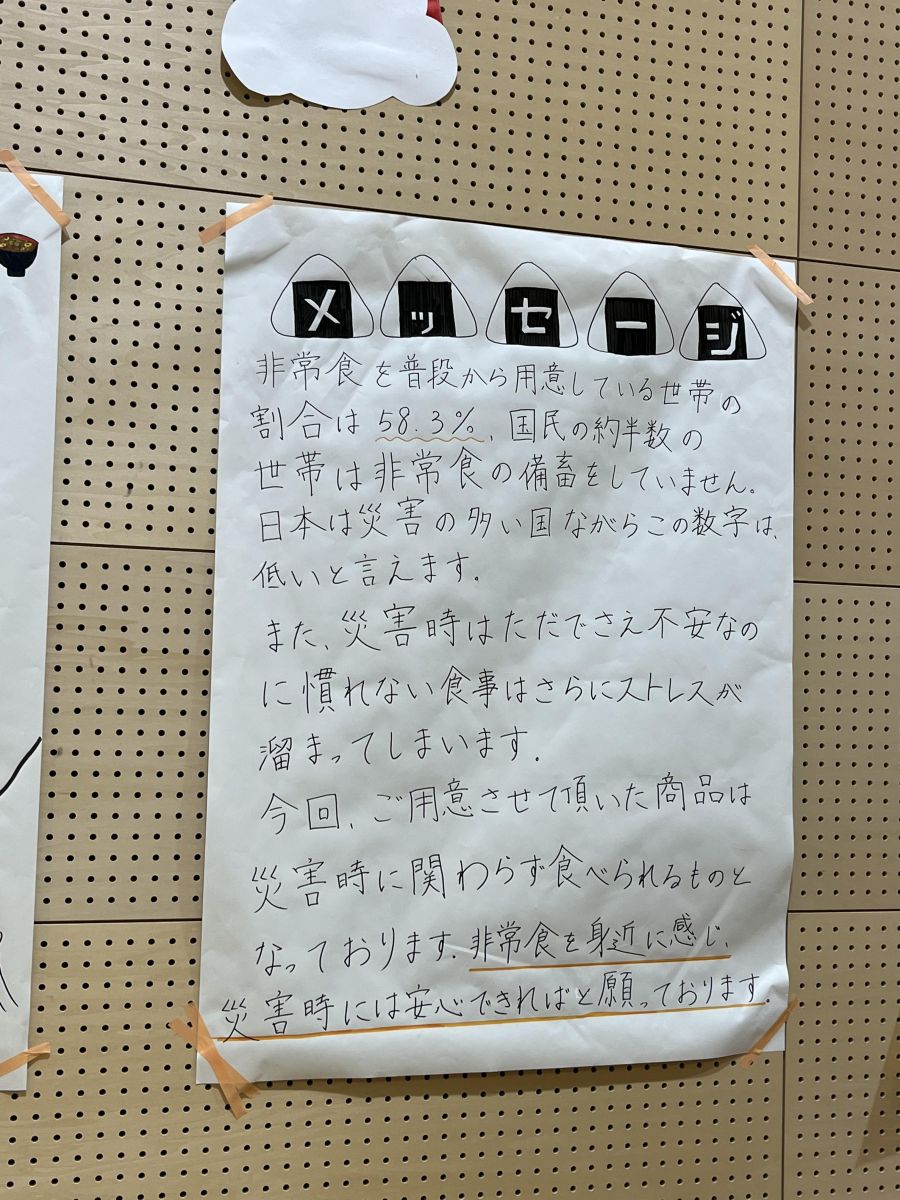 メッセージ
非常食を普段から用意している世帯の
割合は58.3%、国民の約半数の
世帯は非常食の備畜をしていません。
日本は災害の多い国ながらこの数字は、
低いと言えます。
また、災害時はただでさえ不安なの
に慣れない食事はさらにストレスが
溜まってしまいます。
今回、ご用意させて頂いた商品は
災害時に関わらず食べられるものと
なっております。非常食を身近に感じ、
災害時には安心できればと願っております。